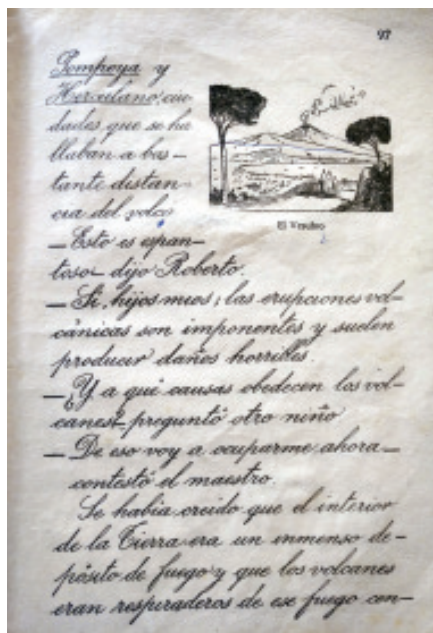 97
Pompeya y
Herculano, ciu-
dades que se ha
llaban a bas-
tante distan-
cia del volcá
El Vesubio
—Esto es espan-
toso— dijo Roberto.
—Si, hijos mios; las erupciones vol-
cánicas son imponentes y suelen
producir daños horribles.
—¿Y a qué causas obedecen los vol-
canes?— preguntó otro niño
—De eso voy a ocuparme ahora—
contestó el maestro.
Se habia creido que el interior
de la Tierra era un inmenso de-
pósito de fuego y que los volcanes
eran respiraderos de ese fuego cen-